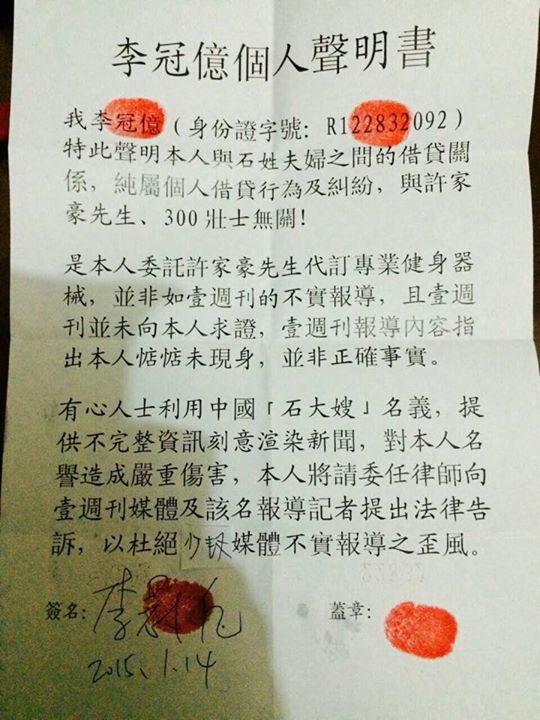 李冠億個人聲明書
我李冠億（身份證字號：R122832092）
特此聲明本人與石姓夫婦之間的借貸關
係，純屬個人借貸行為及糾紛，與許家
豪先生、300壯士無關！
是本人委託許家豪先生代訂專業健身器
械，並非如壹週刊的不實報導，且壹週
刊並未向本人求證，壹週刊報導內容指
出本人惦惦未現身，並非正確事實。
有心人士利用中國「石大嫂」名義，提
供不完整資訊刻意渲染新聞，對本人名
譽造成嚴重傷害，本人將請委任律師向
壹週刊媒體及該名報導記者提出法律告
訴，以杜絕少數媒體不實報導之歪風。
簽名：李冠億 蓋章：
2015.1.14